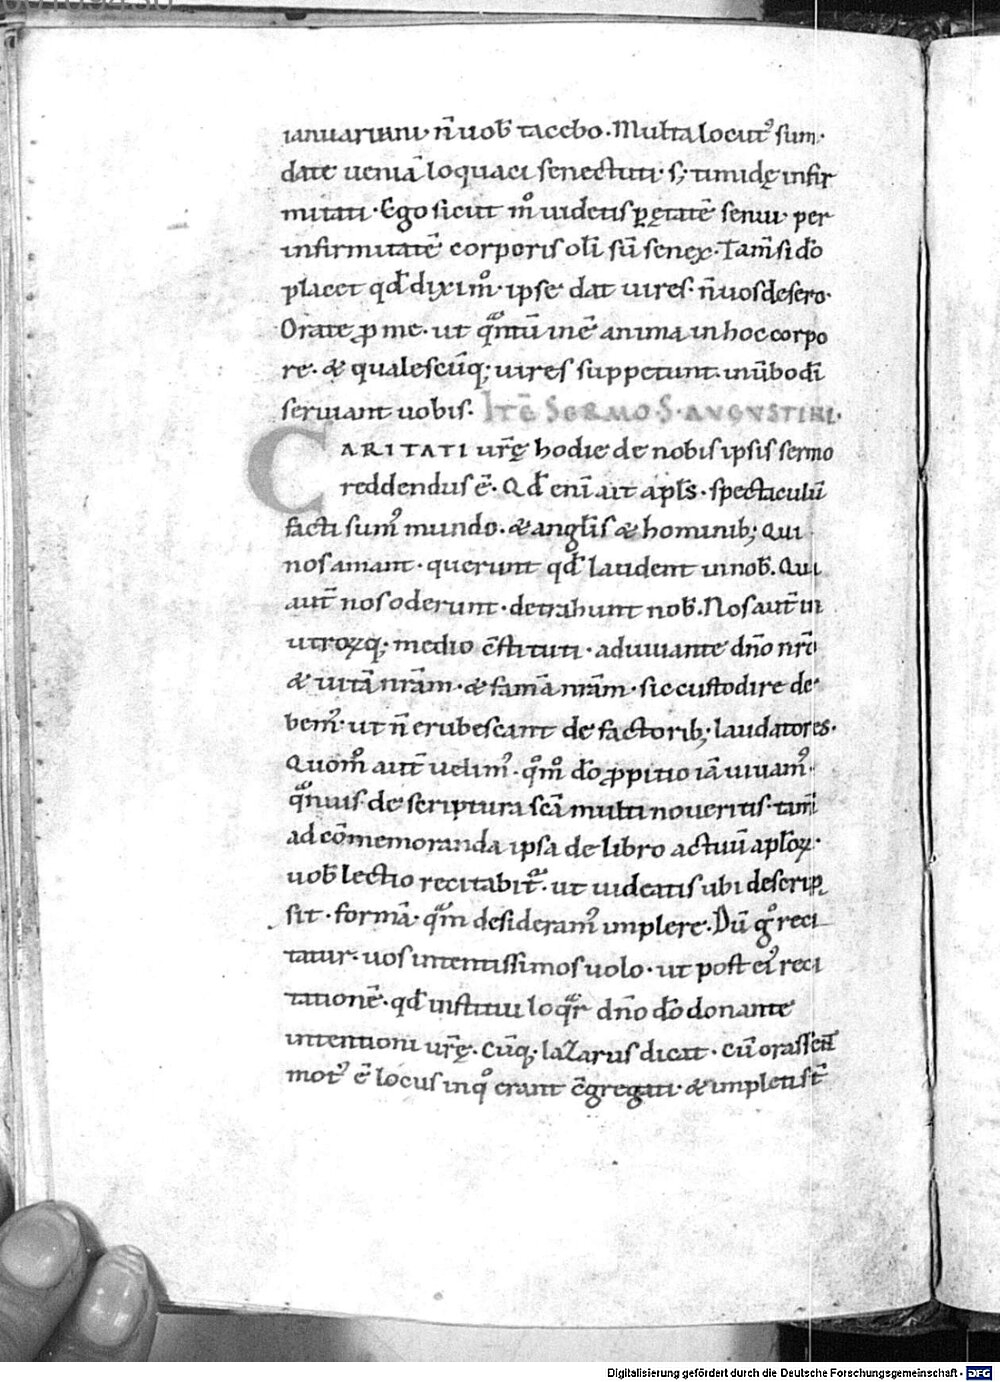 ianuariani· n̄ uob̄ tacebo. Multa locut᷒ sum·
date ueniā loquaci senectuti· s; timidę infir
mitati· Ego sicut m° uidetis ꝑ ętatē senui· per
infirmitatē corporis oli sū senex. Tam̄ si dō
placet qđ dixim᷒· ipse dat uires· n̄ uos desero·
Orate ꝓ me· ut qͣntū inē anima in hoc corpo
re· & qualescūq; uires suppetunt· in ūbo dī
seruiant uobis. Itē Sermo S. Augustini.
CARITATI ur̄ę hodie de nobis ipsis sermo
reddendus ē. Qđ eni ait apl̄s· spectaculū
facti sum᷒ mundo· & angl̄is & hominib; Qui
nos amant· querunt qđ laudent in nob̄. Qui
aut̄ nos oderunt· detrahunt nob̄. Nos aut̄ in
utroꝝq; medio c̄stituti· adiuuante dn̄o nr̄o
& uitā nr̄am· & famā nr̄am· sic custodire de
bem᷒· ut n̄ erubescant de factorib; laudatores·
Quom̊ aut̄ uelim᷒· qm̊ dō ꝓpitio iā uiuam᷒·
qͣnuis de scriptura scā multi noueritis· tam̄
ad cōmemoranda ipsa de libro actuū apl̄oꝝ·
uob̄ lectio recitabit᷑· ut uideatis ubi descrip
sit· formā· qͣm desideram᷒ implere. Dū g° reci
tatur· uos intentissimos uolo· ut post ei᷒ reci
tationē· qđ institui loqͣr dn̄o dō donante
intentioni ur̄ę. Cūq; lazarus dicat· cū orassent
mot᷒ ē locus inq° erant c̄gregati· & impleti st̄
Digitalisierung gefördert durch die Deutsche Forschungsgemeinschaft - DFG